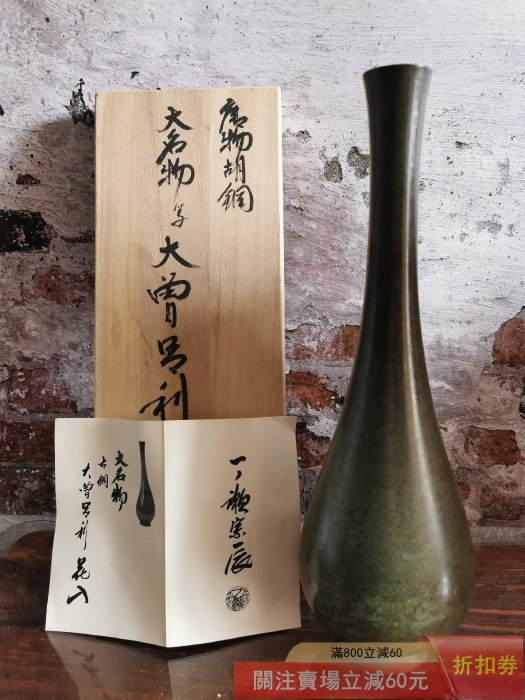 唐物胡銅
大名物 写 大曽呂利
大名物
古銅
大曽呂利 花入
一ノ瀬宗辰
滿800立減60
關注賣場立減60元
折扣券